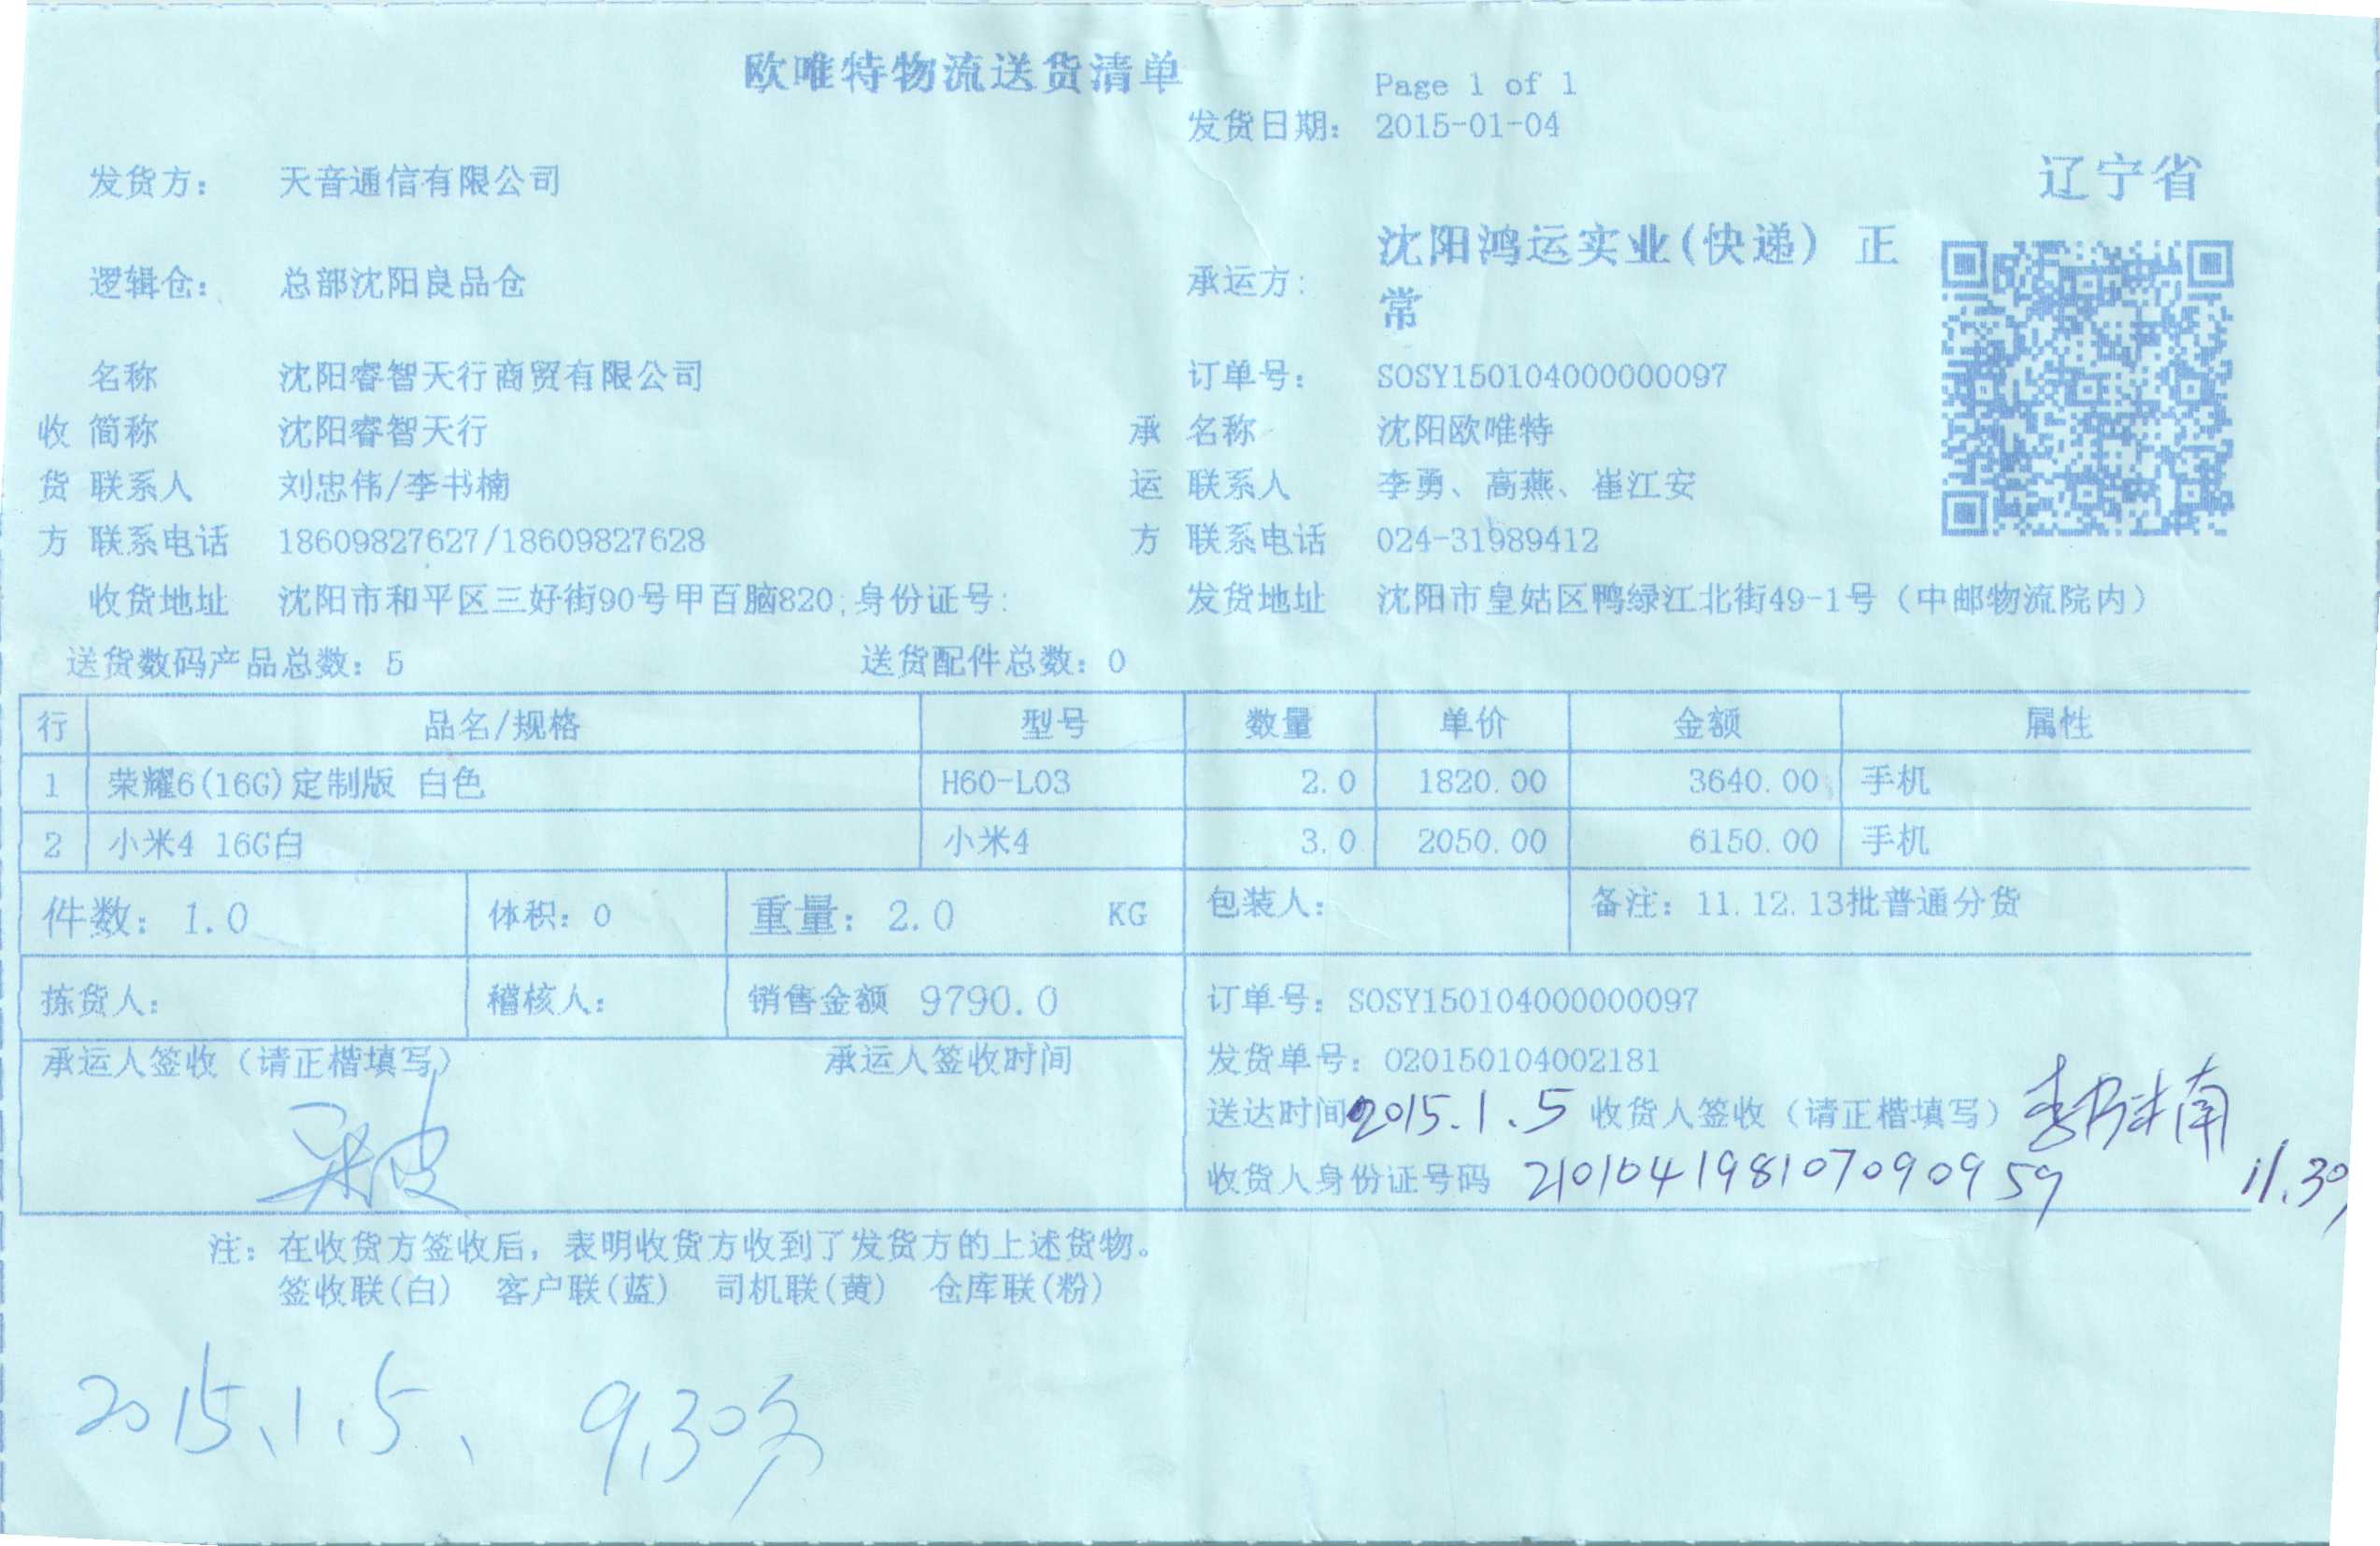 欧唯特物流送货清单
Page 1 of 1
发货日期： 2015-01-04
辽宁省
发货方： 天音通信有限公司
逻辑仓： 总部沈阳良品仓 承运方： 沈阳鸿运实业(快递) 正
常
名称 沈阳睿智天行商贸有限公司 订单号： SOSY150104000000097
收 简称 沈阳睿智天行 承 名称 沈阳欧唯特
货 联系人 刘忠伟/李书楠 运 联系人 李勇、高燕、崔江安
方 联系电话 18609827627/18609827628 方 联系电话 024-31989412
收货地址 沈阳市和平区三好街90号甲百脑820;身份证号： 发货地址 沈阳市皇姑区鸭绿江北街49-1号（中邮物流院内）
送货数码产品总数：5 送货配件总数：0
行 品名/规格 型号 数量 单价 金额 属性
1 荣耀6(16G)定制版 白色 H60-L03 2.0 1820.00 3640.00 手机
2 小米4 16G白 小米4 3.0 2050.00 6150.00 手机
件数：1.0 体积：0 重量：2.0 KG 包装人： 备注：11.12.13批普通分货
拣货人： 稽核人： 销售金额 9790.0 订单号：SOSY150104000000097
承运人签收（请正楷填写） 承运人签收时间 发货单号：020150104002181
送达时间 2015.1.5 收货人签收（请正楷填写） 李书楠
收货人身份证号码 210104198107090959 11.30
注：在收货方签收后，表明收货方收到了发货方的上述货物。
签收联(白) 客户联(蓝) 司机联(黄) 仓库联(粉)
2015、1、5、 9,30分